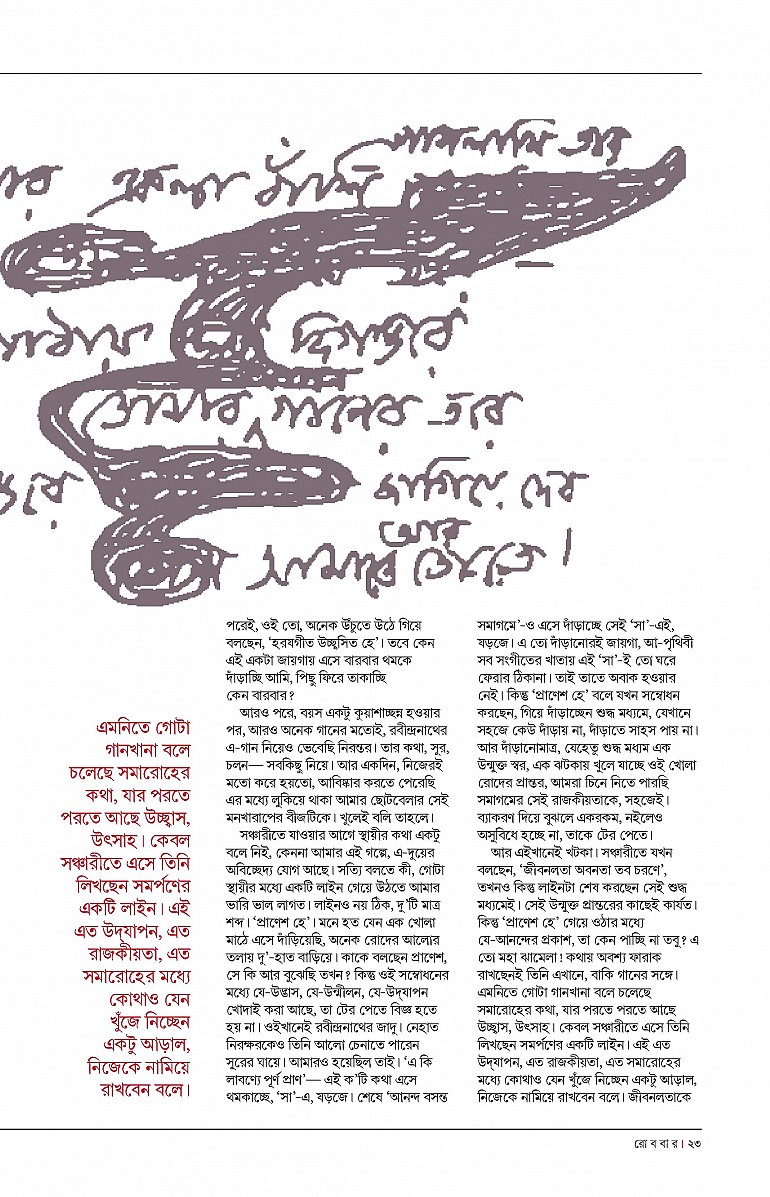 একলা
দিগন্তরে
তোমার গানের তরে
জাগিয়ে দেব
আর
আমারে
এমনিতে গোটা
গানখানা বলে
চলেছে সমারোহের
কথা, যার পরতে
পরতে আছে উচ্ছ্বাস,
উৎসাহ। কেবল
সঞ্চারীতে এসে তিনি
লিখছেন সমর্পণের
একটি লাইন। এই
এত উদ্‌যাপন, এত
রাজকীয়তা, এত
সমারোহের মধ্যে
কোথাও যেন
খুঁজে নিচ্ছেন
একটু আড়াল,
নিজেকে নামিয়ে
রাখবেন বলে।
পরেই, ওই তো, অনেক উঁচুতে উঠে গিয়ে
বলছেন, ‘হরযগীত উচ্ছ্বসিত হে’। তবে কেন
এই একটা জায়গায় এসে বারবার থমকে
দাঁড়াচ্ছি আমি, পিছু ফিরে তাকাচ্ছি
কেন বারবার?
আরও পরে, বয়স একটু কুয়াশাচ্ছন্ন হওয়ার
পর, আরও অনেক গানের মতোই, রবীন্দ্রনাথের
এ-গান নিয়েও ভেবেছি নিরন্তর। তার কথা, সুর,
চলন— সবকিছু নিয়ে। আর একদিন, নিজেরই
মতো করে হয়তো, আবিষ্কার করতে পেরেছি
এর মধ্যে লুকিয়ে থাকা আমার ছোটবেলার সেই
মনখারাপের বীজটিকে। খুলেই বলি তাহলে।
সঞ্চারীতে যাওয়ার আগে স্থায়ীর কথা একটু
বলে নিই, কেননা আমার এই গল্পে, এ-দুয়ের
অবিচ্ছেদ্য যোগ আছে। সত্যি বলতে কী, গোটা
স্থায়ীর মধ্যে একটি লাইন গেয়ে উঠতে আমার
ভারি ভাল লাগত। লাইনও নয় ঠিক, দু’টি মাত্র
শব্দ। ‘প্রাণেশ হে’। মনে হত যেন এক খোলা
মাঠে এসে দাঁড়িয়েছি, অনেক রোদের আলোর
তলায় দু’-হাত বাড়িয়ে। কাকে বলছেন প্রাণেশ,
সে কি আর বুঝেছি তখন? কিন্তু ওই সম্বোধনের
মধ্যে যে-উদ্ভাস, যে-উন্মীলন, যে-উদ্‌যাপন
খোদাই করা আছে, তা টের পেতে বিজ্ঞ হতে
হয় না। ওইখানেই রবীন্দ্রনাথের জাদু। নেহাত
নিরক্ষরকেও তিনি আলো চেনাতে পারেন
সুরের ঘায়ে। আমারও হয়েছিল তাই। ‘এ কি
লাবণ্যে পূর্ণ প্রাণ’— এই ক’টি কথা এসে
থমকাচ্ছে, ‘সা’-এ, ষড়জে। শেষে ‘আনন্দ বসন্ত
সমাগমে’-ও এসে দাঁড়াচ্ছে সেই ‘সা’-এই,
ষড়জে। এ তো দাঁড়ানোরই জায়গা, আ-পৃথিবী
সব সংগীতের খাতায় এই ‘সা’-ই তো ঘরে
ফেরার ঠিকানা। তাই তাতে অবাক হওয়ার
নেই। কিন্তু ‘প্রাণেশ হে’ বলে যখন সম্বোধন
করছেন, গিয়ে দাঁড়াচ্ছেন শুদ্ধ মধ্যমে, যেখানে
সহজে কেউ দাঁড়ায় না, দাঁড়াতে সাহস পায় না।
আর দাঁড়ানোমাত্র, যেহেতু শুদ্ধ মধ্যম এক
উন্মুক্ত স্বর, এক ঝটকায় খুলে যাচ্ছে ওই খোলা
রোদের প্রান্তর, আমরা চিনে নিতে পারছি
সমাগমের সেই রাজকীয়তাকে, সহজেই।
ব্যাকরণ দিয়ে বুঝলে একরকম, নইলেও
অসুবিধে হচ্ছে না, তাকে টের পেতে।
আর এইখানেই খটকা। সঞ্চারীতে যখন
বলছেন, ‘জীবনলতা অবনতা তব চরণে’,
তখনও কিন্তু লাইনটা শেষ করছেন সেই শুদ্ধ
মধ্যমেই। সেই উন্মুক্ত প্রান্তরের কাছেই কার্যত।
কিন্তু ‘প্রাণেশ হে’ গেয়ে ওঠার মধ্যে
যে-আনন্দের প্রকাশ, তা কেন পাচ্ছি না তবু? এ
তো মহা ঝামেলা! কথায় অবশ্য ফারাক
রাখছেনই তিনি এখানে, বাকি গানের সঙ্গে।
এমনিতে গোটা গানখানা বলে চলেছে
সমারোহের কথা, যার পরতে পরতে আছে
উচ্ছ্বাস, উৎসাহ। কেবল সঞ্চারীতে এসে তিনি
লিখছেন সমর্পণের একটি লাইন। এই এত
উদ্‌যাপন, এত রাজকীয়তা, এত সমারোহের
মধ্যে কোথাও যেন খুঁজে নিচ্ছেন একটু আড়াল,
নিজেকে নামিয়ে রাখবেন বলে। জীবনলতাকে
রো ব বা র । ২৩